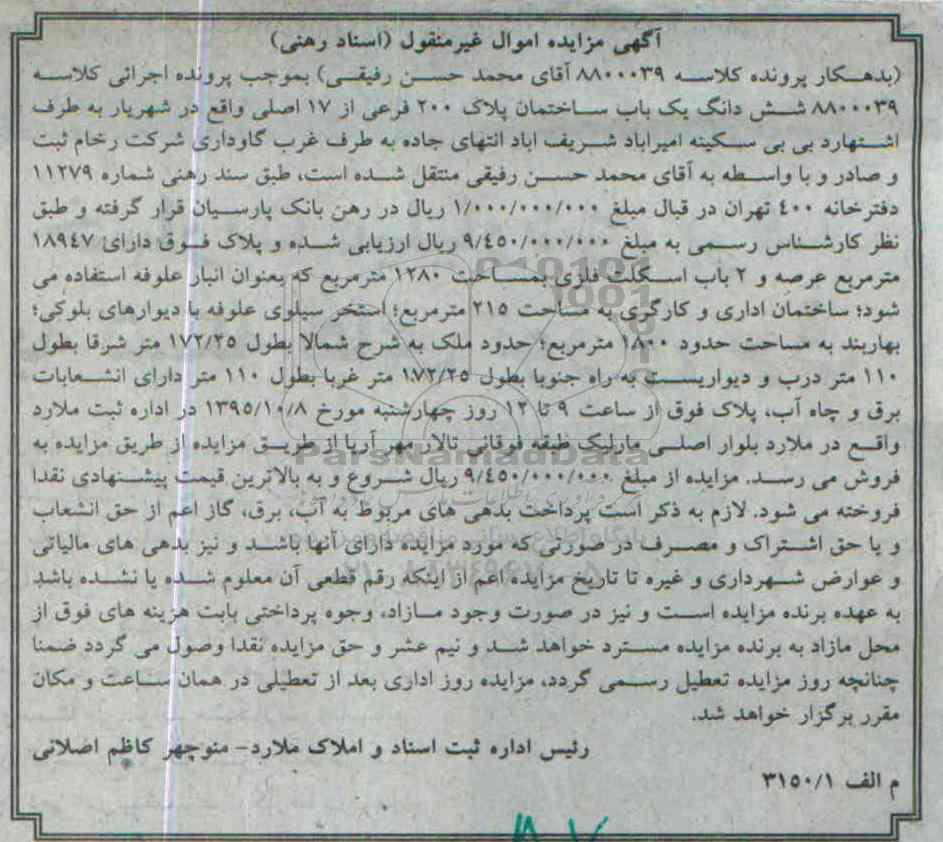 آگهی مزایده اموال غیرمنقول (اسناد رهنی)
(بدهکار پرونده کلاسه ۸۸۰۰۰۳۹ آقای محمد حسن رفیقی) بموجب پرونده اجرائی کلاسه
۸۸۰۰۰۳۹ شش دانگ یک باب ساختمان پلاک ۲۰۰ فرعی از ۱۷ اصلی واقع در شهریار به طرف
اشتهارد بی بی سکینه امیراباد شریف اباد انتهای جاده به طرف غرب گاوداری شرکت رخام ثبت
و صادر و با واسطه به آقای محمد حسن رفیقی منتقل شده است، طبق سند رهنی شماره ۱۱۲۷۹
دفترخانه ۴۰۰ تهران در قبال مبلغ ۱/۰۰۰/۰۰۰/۰۰۰ ریال در رهن بانک پارسیان قرار گرفته و طبق
نظر کارشناس رسمی به مبلغ ۹/۴۵۰/۰۰۰/۰۰۰ ریال ارزیابی شده و پلاک فوق دارای ۱۸۹۴۷
مترمربع عرصه و ۲ باب اسکلت فلزی بمساحت ۱۲۸۰ مترمربع که بعنوان انبار علوفه استفاده می
شود؛ ساختمان اداری و کارگری به مساحت ۲۱۵ مترمربع؛ استخر سیلوی علوفه با دیوارهای بلوکی؛
بهاربند به مساحت حدود ۱۸۰۰ مترمربع؛ حدود ملک به شرح شمالا بطول ۱۷۲/۲۵ متر شرقا بطول
۱۱۰ متر درب و دیواریست به راه جنوبا بطول ۱۷۲/۲۵ متر غربا بطول ۱۱۰ متر دارای انشعابات
برق و چاه آب، پلاک فوق از ساعت ۹ تا ۱۲ روز چهارشنبه مورخ ۱۳۹۵/۱۰/۸ در اداره ثبت ملارد
واقع در ملارد بلوار اصلی مارلیک طبقه فوقانی تالار مهر آریا از طریق مزایده از طریق مزایده به
فروش می رسد. مزایده از مبلغ ۹/۴۵۰/۰۰۰/۰۰۰ ریال شروع و به بالاترین قیمت پیشنهادی نقدا
فروخته می شود. لازم به ذکر است پرداخت بدهی های مربوط به آب، برق، گاز اعم از حق انشعاب
و یا حق اشتراک و مصرف در صورتی که مورد مزایده دارای آنها باشد و نیز بدهی های مالیاتی
و عوارض شهرداری و غیره تا تاریخ مزایده اعم از اینکه رقم قطعی آن معلوم شده یا نشده باشد
به عهده برنده مزایده است و نیز در صورت وجود مازاد، وجوه پرداختی بابت هزینه های فوق از
محل مازاد به برنده مزایده مسترد خواهد شد و نیم عشر و حق مزایده نقدا وصول می گردد ضمنا
چنانچه روز مزایده تعطیل رسمی گردد، مزایده روز اداری بعد از تعطیلی در همان ساعت و مکان
مقرر برگزار خواهد شد.
رئیس اداره ثبت اسناد و املاک ملارد- منوچهر کاظم اصلانی
م الف ۳۱۵۰/۱
ParsNamadData